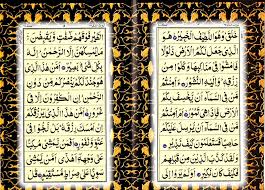 خَلَقَ وَهُوَ اللَّطِيفُ الْخَبِيرُ هُوَ
الَّذِي جَعَلَ لَكُمُ الْأَرْضَ ذَلُولًا
فَامْشُوا فِي مَنَاكِبِهَا وَكُلُوا مِنْ
رِزْقِهِ وَإِلَيْهِ النُّشُورُ ءَأَمِنْتُمْ
مَنْ فِي السَّمَاءِ أَنْ يَخْسِفَ بِكُمُ
الْأَرْضَ فَإِذَا هِيَ تَمُورُ أَمْ أَمِنْتُمْ
مَنْ فِي السَّمَاءِ أَنْ يُرْسِلَ عَلَيْكُمْ
حَاصِبًا فَسَتَعْلَمُونَ كَيْفَ نَذِيرِ
وَلَقَدْ كَذَّبَ الَّذِينَ مِنْ قَبْلِهِمْ
فَكَيْفَ كَانَ نَكِيرِ أَوَلَمْ يَرَوْا إِلَى
الطَّيْرِ فَوْقَهُمْ صَافَّاتٍ وَيَقْبِضْنَ
مَا يُمْسِكُهُنَّ إِلَّا الرَّحْمَنُ إِنَّهُ
بِكُلِّ شَيْءٍ بَصِيرٌ أَمَّنْ هَذَا الَّذِي
هُوَ جُنْدٌ لَكُمْ يَنْصُرُكُمْ مِنْ دُونِ
الرَّحْمَنِ إِنِ الْكَافِرُونَ إِلَّا فِي
غُرُورٍ أَمَّنْ هَذَا الَّذِي يَرْزُقُكُمْ
إِنْ أَمْسَكَ رِزْقَهُ بَلْ لَجُّوا فِي
عُتُوٍّ وَنُفُورٍ أَفَمَنْ يَمْشِي مُكِبًّا
عَلَى وَجْهِهِ أَهْدَى أَمَّنْ يَمْشِي
سَوِيًّا عَلَى صِرَاطٍ مُسْتَقِيمٍ قُلْ